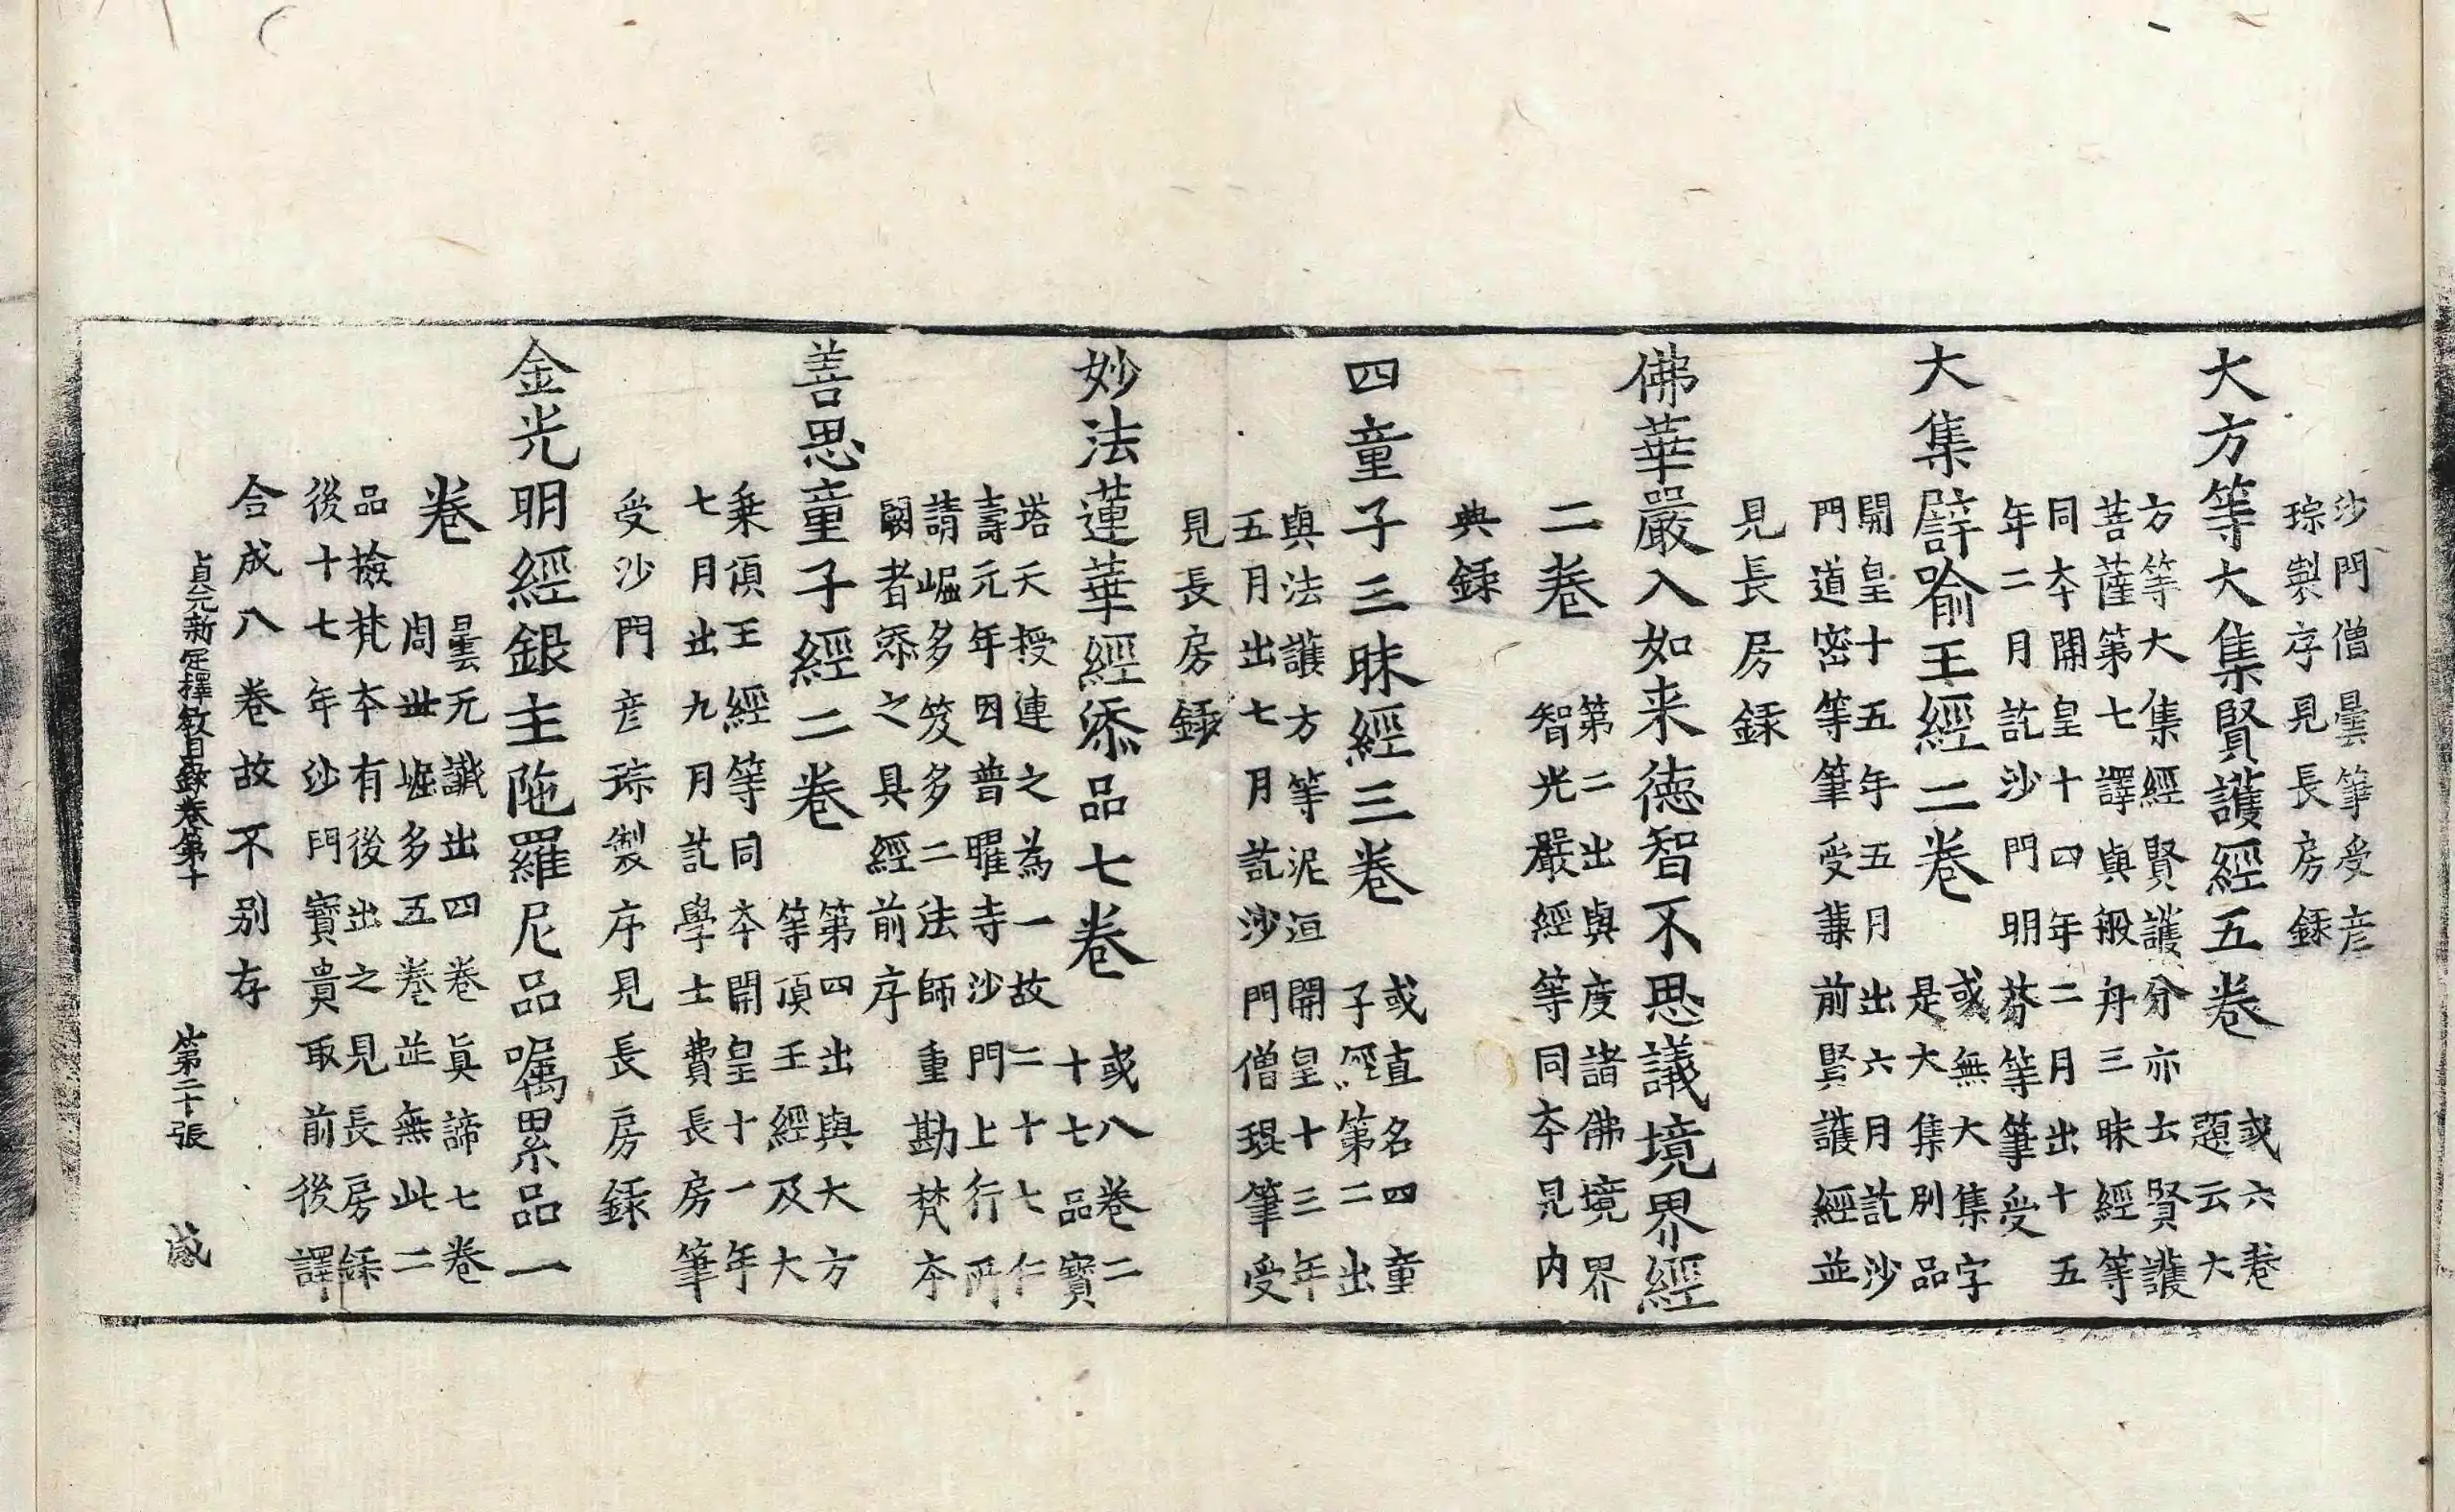 沙門僧曇筆受彦
琮製序見長房録
大方等大集賢護經五卷
或六卷
題云大
方等大集經賢護分亦云賢護
菩薩第七譯與般舟三昧經等
同本開皇十四年二月出十五
年二月訖沙門明芬等筆受
大集譬喻王經二卷
或無大集字
是大集別品
開皇十五年五月出六月訖沙
門道密等筆受兼前賢護經並
見長房録
佛華嚴入如来徳智不思議境界經
二卷
第二出與度諸佛境界
智光嚴經等同本見内
典録
四童子三昧經三卷
或直名四童
子經第二出
與法護方等泥洹開皇十三年
五月出七月訖沙門僧琨筆受
見長房録
妙法蓮華經添品七卷
或八卷二
十七品寶
塔天授連之為一故二十七仁
壽元年因普曜寺沙門上行所
請崛多笈多二法師重勘梵本
闕者添之具經前序
善思童子經二卷
第四出與大方
等頂王經及大
乗頂王經等同本開皇十一年
七月出九月訖學士費長房筆
受沙門彦琮製序見長房録
金光明經銀主陁羅尼品嘱累品一
卷
曇无讖出四卷真諦七卷
周世崛多五卷並無此二
品撿梵本有後出之見長房録
後十七年沙門寶貴取前後譯
合成八卷故不别存
貞元新定釋教目録卷第十 第二十張 感